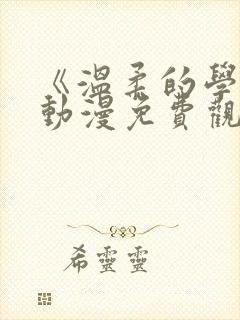 《溫柔的學
動漫免費觀
希靈靈